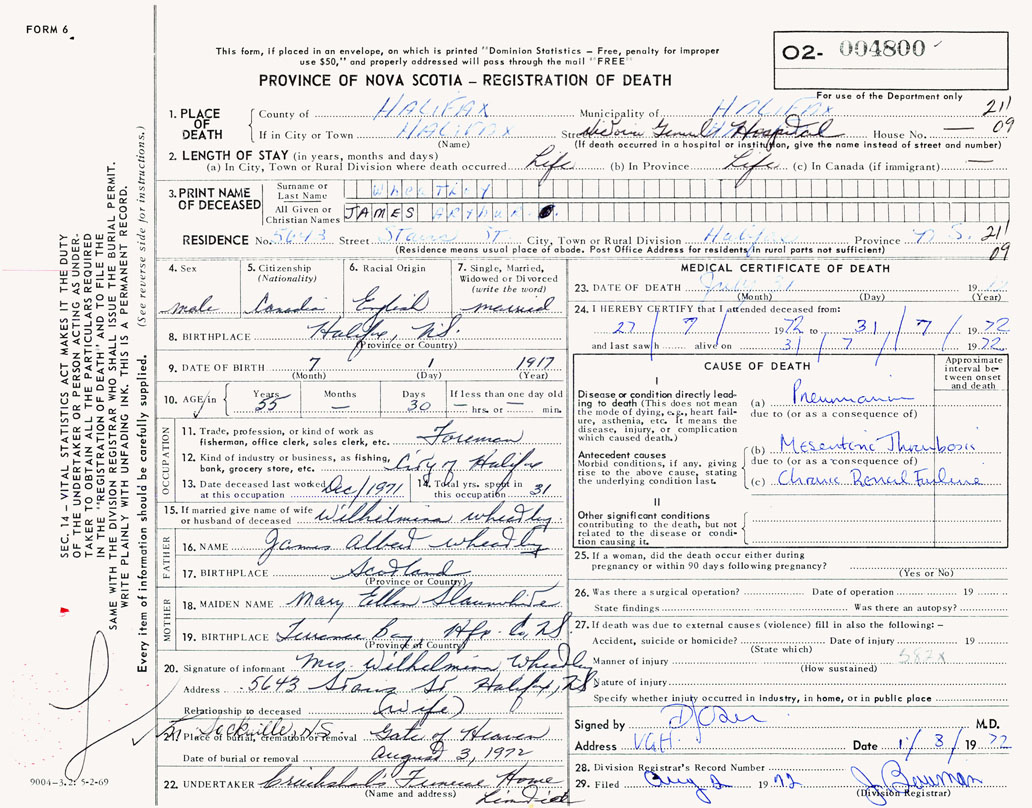 FORM 6
This form, if placed in an envelope, on which is printed "Dominion Statistics – Free, penalty for improper
use $50," and properly addressed will pass through the mail "FREE"
PROVINCE OF NOVA SCOTIA – REGISTRATION OF DEATH
02- 004800
For use of the Department only
1. PLACE OF DEATH
County of HALIFAX Municipality of HALIFAX 21
If in City or Town HALIFAX Street Victoria General Hospital House No. — 09
(Name) (If death occurred in a hospital or institution, give the name instead of street and number)
2. LENGTH OF STAY (in years, months and days)
(a) In City, Town or Rural Division where death occurred Life (b) In Province Life (c) In Canada (if immigrant) —
3. PRINT NAME OF DECEASED
Surname or Last Name Wheatley
All Given or Christian Names JAMES ARTHUR
RESIDENCE No. 5643 Street St. City, Town or Rural Division Halifax Province N.S. 21
(Residence means usual place of abode. Post Office Address for residents in rural parts not sufficient) 09
4. Sex male
5. Citizenship (Nationality) Canadian
6. Racial Origin English
7. Single, Married, Widowed or Divorced (write the word) married
8. BIRTHPLACE Halifax, N.S.
(Province or Country)
9. DATE OF BIRTH 7 1 1917
(Month) (Day) (Year)
10. AGE in Years 55 Months — Days 30 If less than one day old — hrs. or — min.
OCCUPATION
11. Trade, profession or kind of work as fisherman, office clerk, sales clerk, etc. Foreman
12. Kind of industry or business, as fishing, bank, grocery store, etc. City of Halifax
13. Date deceased last worked at this occupation Dec/1971 14. Total yrs. spent in this occupation 31
15. If married give name of wife or husband of deceased Wilhilmina Wheatley
FATHER
16. NAME James Albert Wheatley
17. BIRTHPLACE Scotland
(Province or Country)
MOTHER
18. MAIDEN NAME Mary Ellen Slaunwhite
19. BIRTHPLACE Terrence Bay, Hfx. Co, N.S.
(Province or Country)
20. Signature of informant Mrs. Wilhelmina Wheatley
Address 5643 St Halifax, N.S.
Relationship to deceased (wife)
Sackville, N.S.
21. Place of burial, cremation or removal Gate of Heaven
Date of burial or removal August 3, 1972
22. UNDERTAKER Cruikshank's Funeral Home
(Name and address)
MEDICAL CERTIFICATE OF DEATH
23. DATE OF DEATH July 31 19
(Month) (Day) (Year)
24. I HEREBY CERTIFY that I attended deceased from:
27 / 7 / 1972 to 31 / 7 / 1972
and last saw h alive on 31 / 7 / 1972
CAUSE OF DEATH
Approximate interval between onset and death
I
Disease or condition directly leading to death (This does not mean the mode of dying, e.g., heart failure, asthenia, etc. It means the disease, injury, or complication which caused death.)
(a) Pneumonia
due to (or as a consequence of)
Antecedent causes
Morbid conditions, if any, giving rise to the above cause, stating the underlying condition last.
(b) Mesenteric Thrombosis
due to (or as a consequence of)
(c) Chronic Renal Failure
II
Other significant conditions
contributing to the death, but not related to the disease or condition causing it.
25. If a woman, did the death occur either during
pregnancy or within 90 days following pregnancy?
(Yes or No)
26. Was there a surgical operation? Date of operation 19
State findings Was there an autopsy?
27. If death was due to external causes (violence) fill in also the following: –
Accident, suicide or homicide? Date of injury 19
(State which) 582X
Manner of injury
(How sustained)
Nature of injury
Specify whether injury occurred in industry, in home, or in public place
Signed by M.D.
Address VGH Date 1/8 1972
28. Division Registrar's Record Number
29. Filed Aug 2 1972 J. Bauman
(Division Registrar)
SEC. 14 – VITAL STATISTICS ACT MAKES IT THE DUTY
OF THE UNDERTAKER OR PERSON ACTING AS UNDERTAKER TO OBTAIN ALL THE PARTICULARS REQUIRED
IN THE "REGISTRATION OF DEATH" AND TO FILE THE
SAME WITH THE DIVISION REGISTRAR WHO SHALL ISSUE THE BURIAL PERMIT.
WRITE PLAINLY WITH UNFADING INK. THIS IS A PERMANENT RECORD.
Every item of information should be carefully supplied. (See reverse side for instructions.)
9004-3.2: 5-2-69